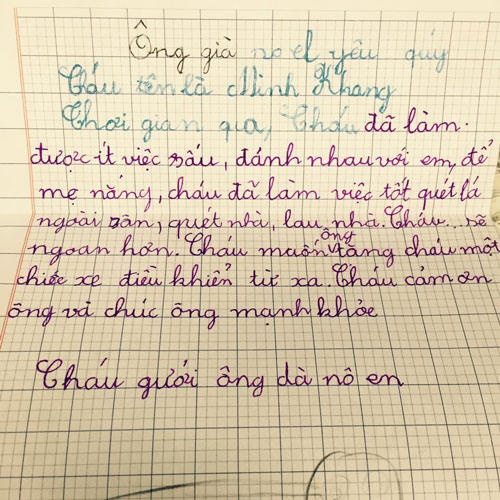 Ông già no el yêu quý
Cháu tên là Minh Khang
Thơi gian qua, Cháu đã làm.
được ít việc sấu, đánh nhau với em, để
mẹ nắng, cháu đã làm việc tốt quét lá
ngoài sân, quét nhà, lau nhà. Cháu sẽ
ngoan hơn. Cháu muốn ông tăng cháu một
chiếc xe điều khiển từ xa. Cháu cảm ơn
ông và chúc ông mạnh khỏe
Cháu gưởi ông dà nô en